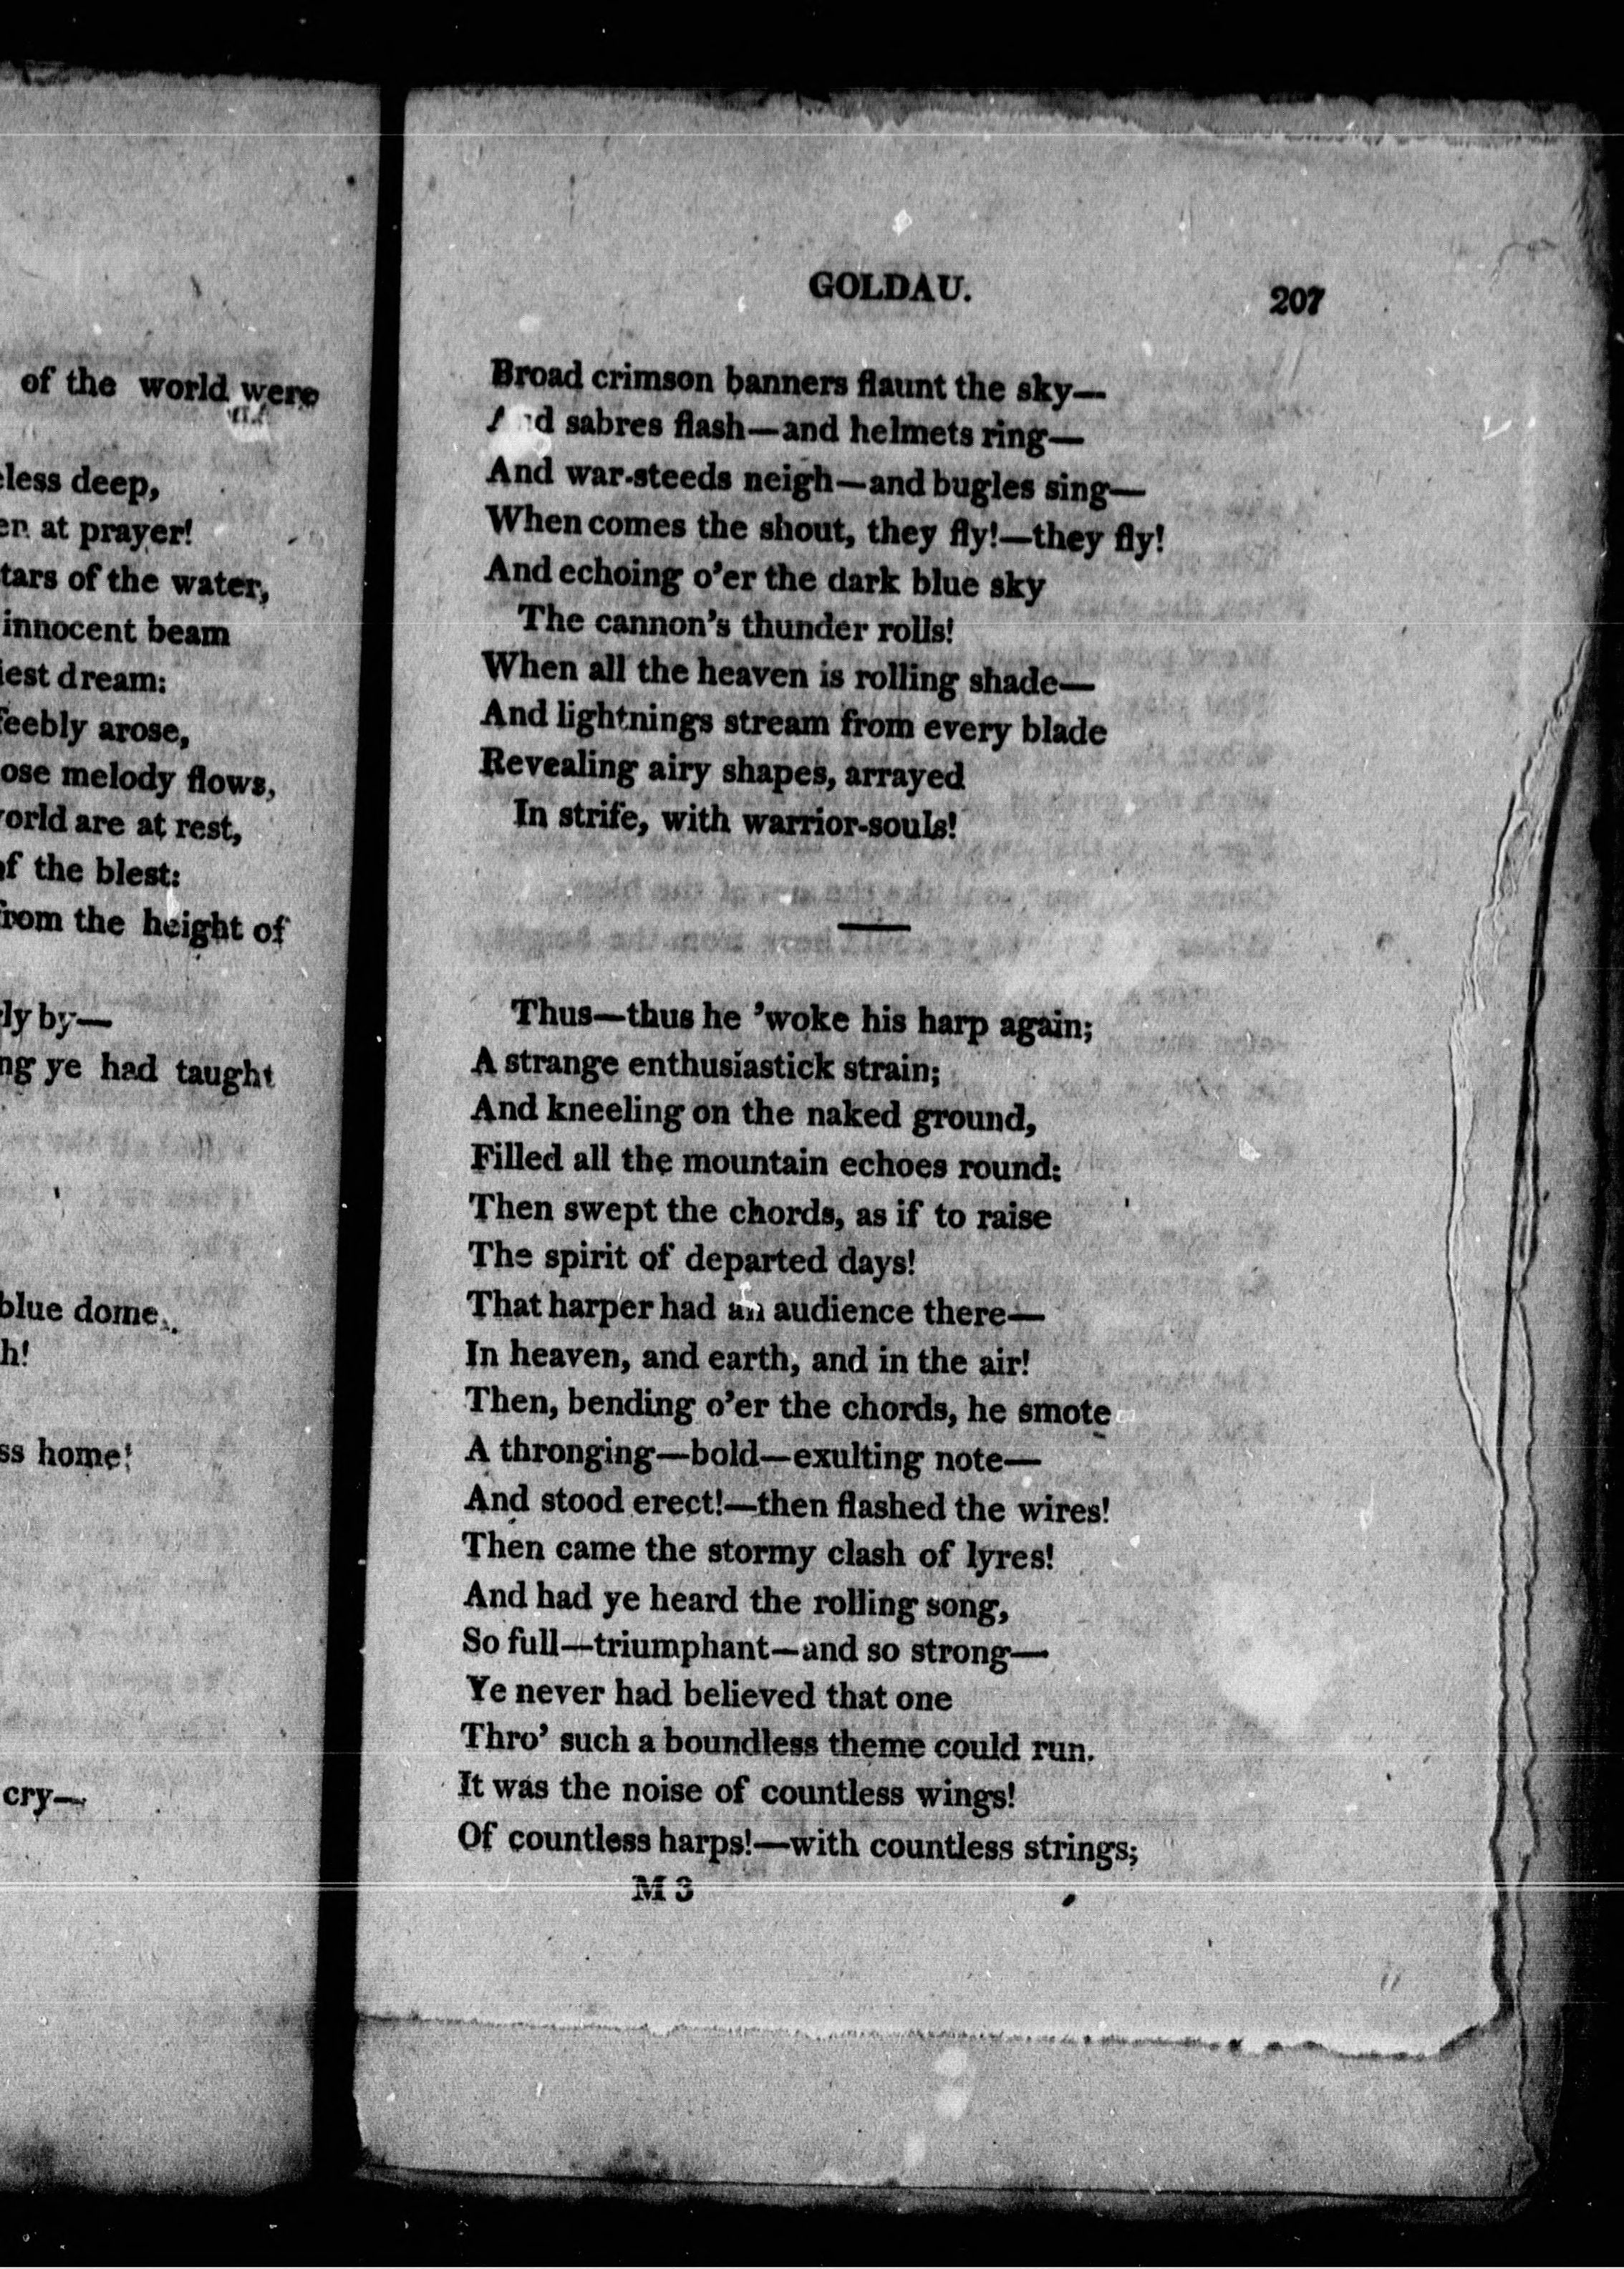 of the world were
less deep,
at prayer!
tars of the water,
innocent beam
iest dream:
feebly arose,
ose melody flows,
world are at rest,
of the blest:
from the height of
ly by—
ng ye had taught
blue dome.
h!
ss home!
cry—
GOLDAU.
207
Broad crimson banners flaunt the sky—
And sabres flash—and helmets ring—
And war-steeds neigh—and bugles sing—
When comes the shout, they fly!—they fly!
And echoing o'er the dark blue sky
The cannon's thunder rolls!
When all the heaven is rolling shade—
And lightnings stream from every blade
Revealing airy shapes, arrayed
In strife, with warrior-souls!
Thus—thus he 'woke his harp again;
A strange enthusiastick strain;
And kneeling on the naked ground,
Filled all the mountain echoes round:
Then swept the chords, as if to raise
The spirit of departed days!
That harper had an audience there—
In heaven, and earth, and in the air!
Then, bending o'er the chords, he smote
A thronging—bold—exulting note—
And stood erect!—then flashed the wires!
Then came the stormy clash of lyres!
And had ye heard the rolling song,
So full—triumphant—and so strong—
Ye never had believed that one
Thro' such a boundless theme could run.
It was the noise of countless wings!
Of countless harps!—with countless strings;
M 3